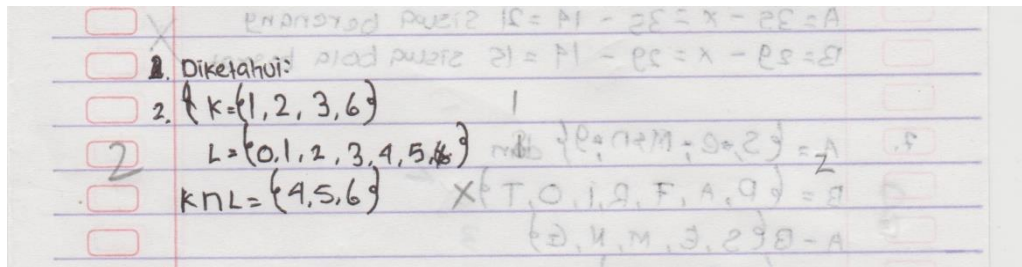 1. Diketahui:
2. { K = {1, 2, 3, 6}
2 L = {0, 1, 2, 3, 4, 5, 6}
K ∩ L = {4, 5, 6}